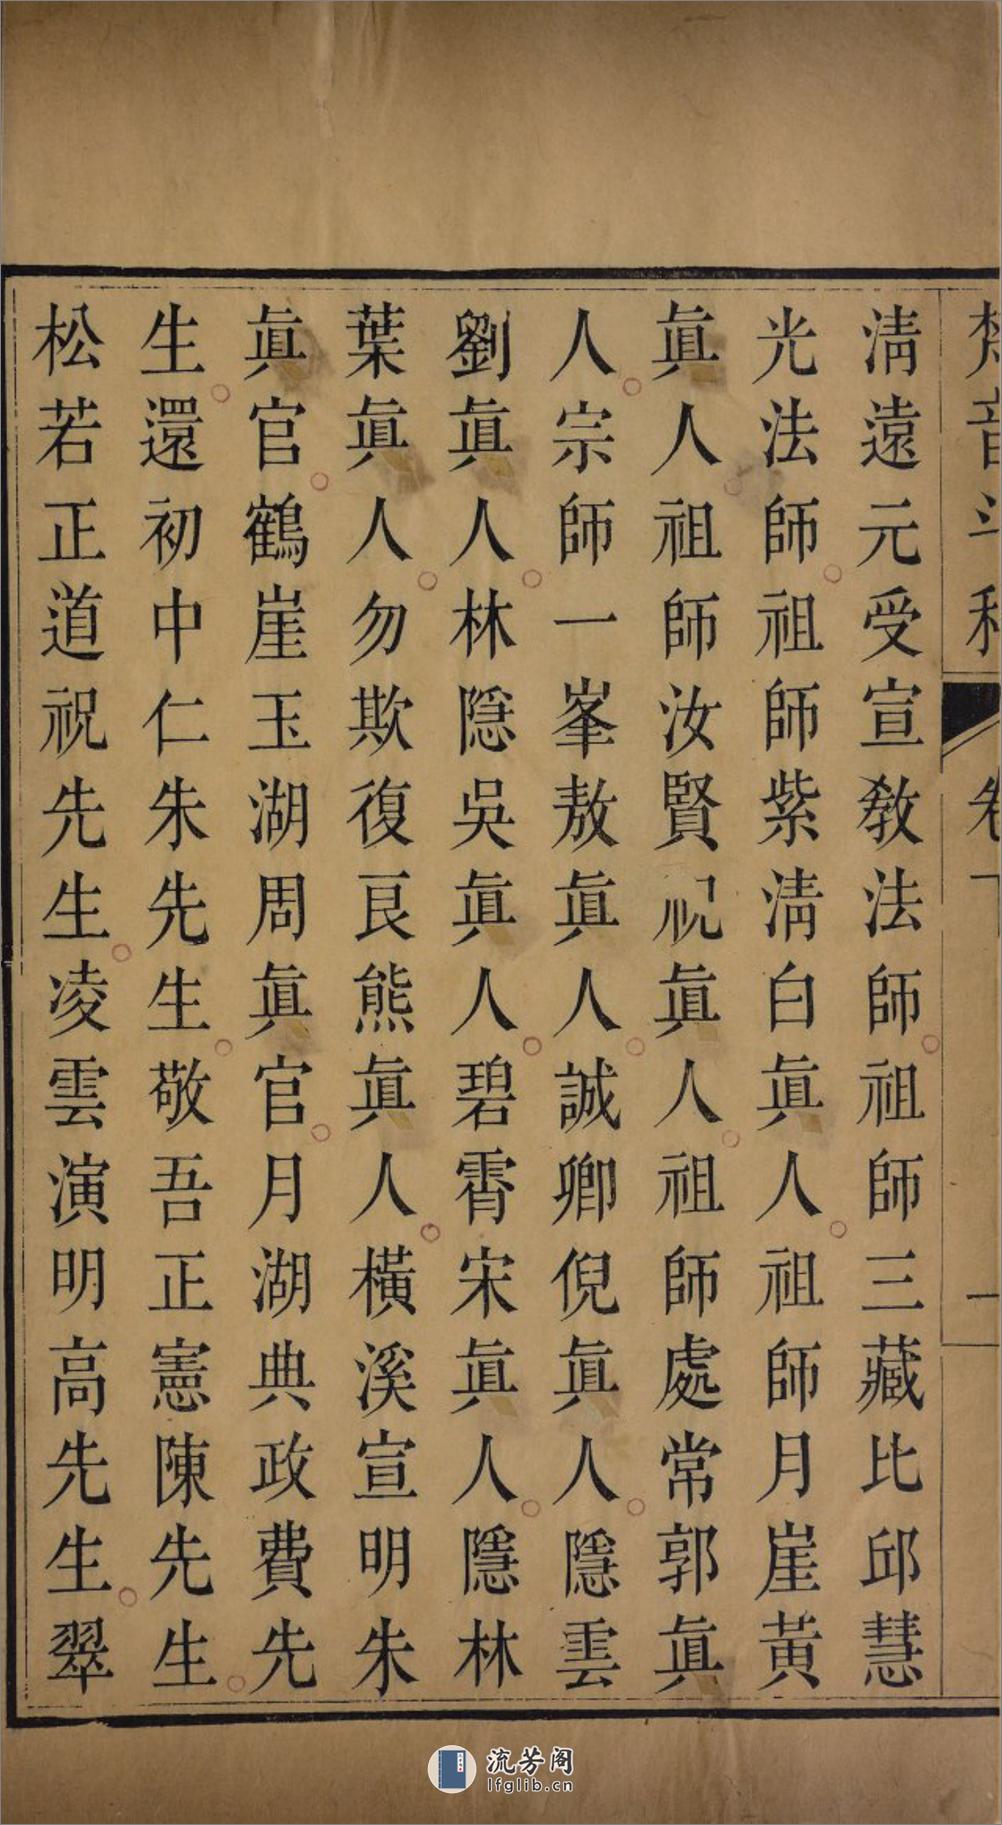 梵音斗科 卷下 一
清遠元受宣教法師祖師三藏比邱慧
光法師祖師紫清白眞人祖師月崖黃
眞人祖師汝賢祝眞人祖師處常郭眞
人宗師一峯敖眞人誠卿倪眞人隱雲
劉眞人林隱吳眞人碧霄宋眞人隱林
葉眞人勿欺復艮熊眞人橫溪宣明朱
眞官鶴崖玉湖周眞官月湖典政費先
生還初中仁朱先生敬吾正憲陳先生
松若正道祝先生凌雲演明高先生翠
流芳阁
lfglib.cn